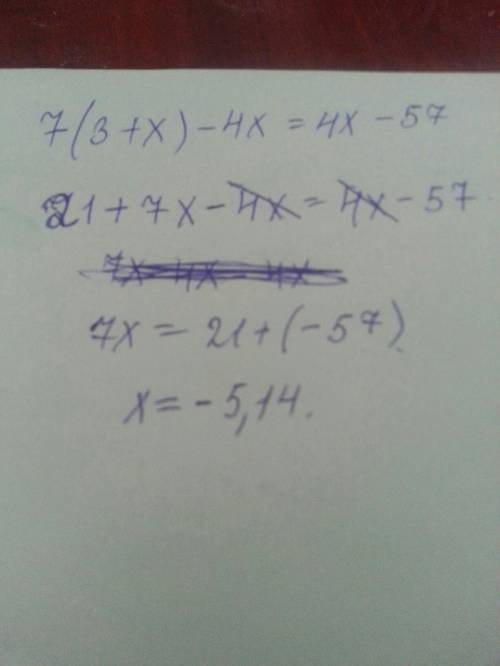 7(3+x)-4x=4x-57
21+7x-4x=4x-57
7x 4x 4x
7x=21+(-57)
x=-5,14.